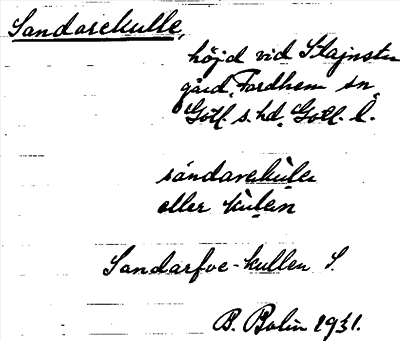 Sandarekulle,
höjd vid Stajnstu
gård, Fardhem sn,
Gotl. s. hd, Gotl. l.
sándarekùlen
eller kùlen
Sandarfve-kullen S.
B. Bolin 1931.